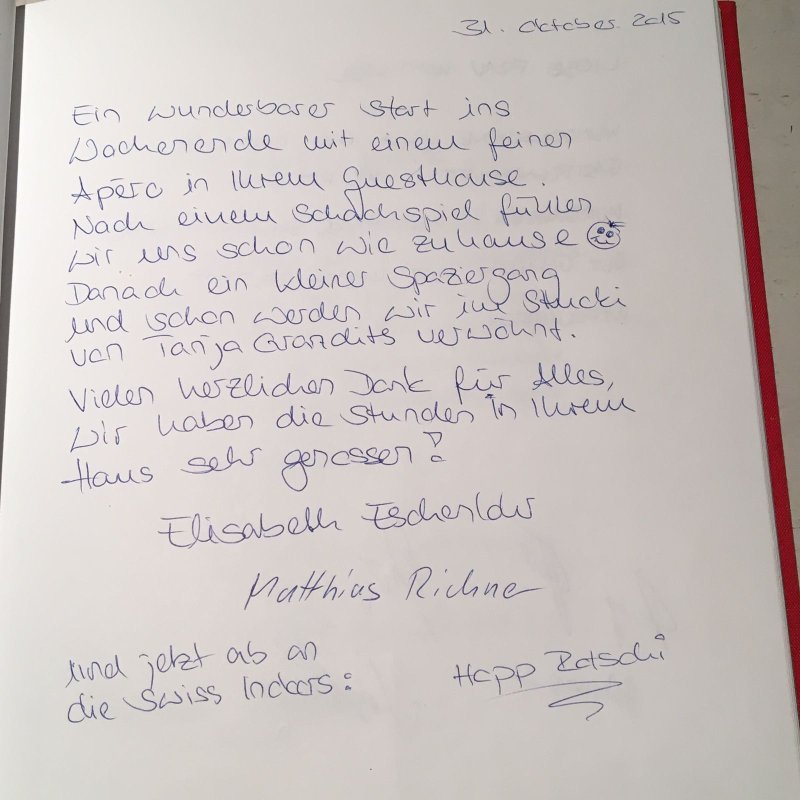 31. Oktober 2015
Ein wunderbarer Start ins
Wochenende mit einem feinen
Apéro in Ihrem Guesthouse.
Nach einem Schachspiel fühlen
wir uns schon wie zuhause
Danach ein kleiner Spaziergang
und schon werden wir im Stucki
von Tanja Grandits verwöhnt.
Vielen herzlichen Dank für Alles,
wir haben die Stunden in Ihrem
Haus sehr genossen!
Elisabeth
Matthias Richner
Und jetzt ab an
die Swiss Indoors:
Hopp